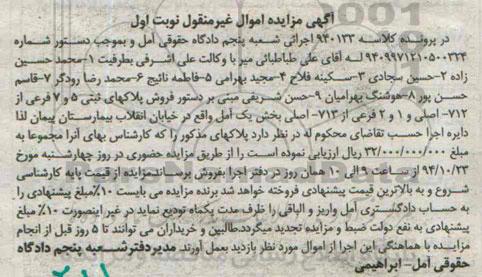 آگهی مزایده اموال غیرمنقول نوبت اول
در پرونده کلاسه ۹۴۰۱۳۳ اجرائی شعبه پنجم دادگاه حقوقی آمل و بموجب دستور شماره
۹۴۰۹۹۷۱۲۱۰۵۰۰۳۲۴ لـه آقای علی طباطبائی میر با وکالت علی اشـرفی بطرفیت ۱-محمد حسین
زاده ۲-حسین سجادی ۳-سکینه فلاح ۴-مجید بهرامی ۵-فاطمه نائیج ۶-محمد رضا رودگر ۷-قاسم
حسن پور ۸-هوشنگ بهرامیان ۹-حسن شریفی مبنی بر دستور فروش پلاکهای ثبتی ۵ و ۷ فرعی از
۷۱۲- اصلی و ۱ و ۲ فرعی از ۷۱۳- اصلی بخش یک آمل واقع در خیابان انقلاب بیمارستان پیمان لذا
دایره اجرا حسب تقاضای محکوم له در نظر دارد پلاکهای مذکور را که کارشناس بهای آنرا مجموعا به
مبلغ ۳۲/۰۰۰/۰۰۰/۰۰۰ ریال ارزیابی نموده است را از طریق مزایده حضوری در روز چهارشنبه مورخ
۹۴/۱۰/۲۳ از ساعت ۹ الی ۱۰ همان روز در دفتر اجرا بفروش برساند.مزایده از قیمت پایه کارشناسی
شروع و به بالاترین قیمت پیشنهادی فروخته خواهد شد برنده مزایده می بایست ۱۰٪مبلغ پیشنهادی را
به حساب دادگستری آمل واریز و الباقی را ظرف مدت یکماه تودیع نماید در غیر اینصورت ۱۰٪ مبلغ
پیشنهادی به نفع دولت ضبط و مزایده تجدید میگردد.طالبین و خریداران می توانند تا ۵ روز قبل از انجام
مزایده با هماهنگی این اجرا از اموال مورد نظر بازدید بعمل آورند. مدیردفترشـعبه پنجم دادگاه
حقوقی آمل- ابراهیمی